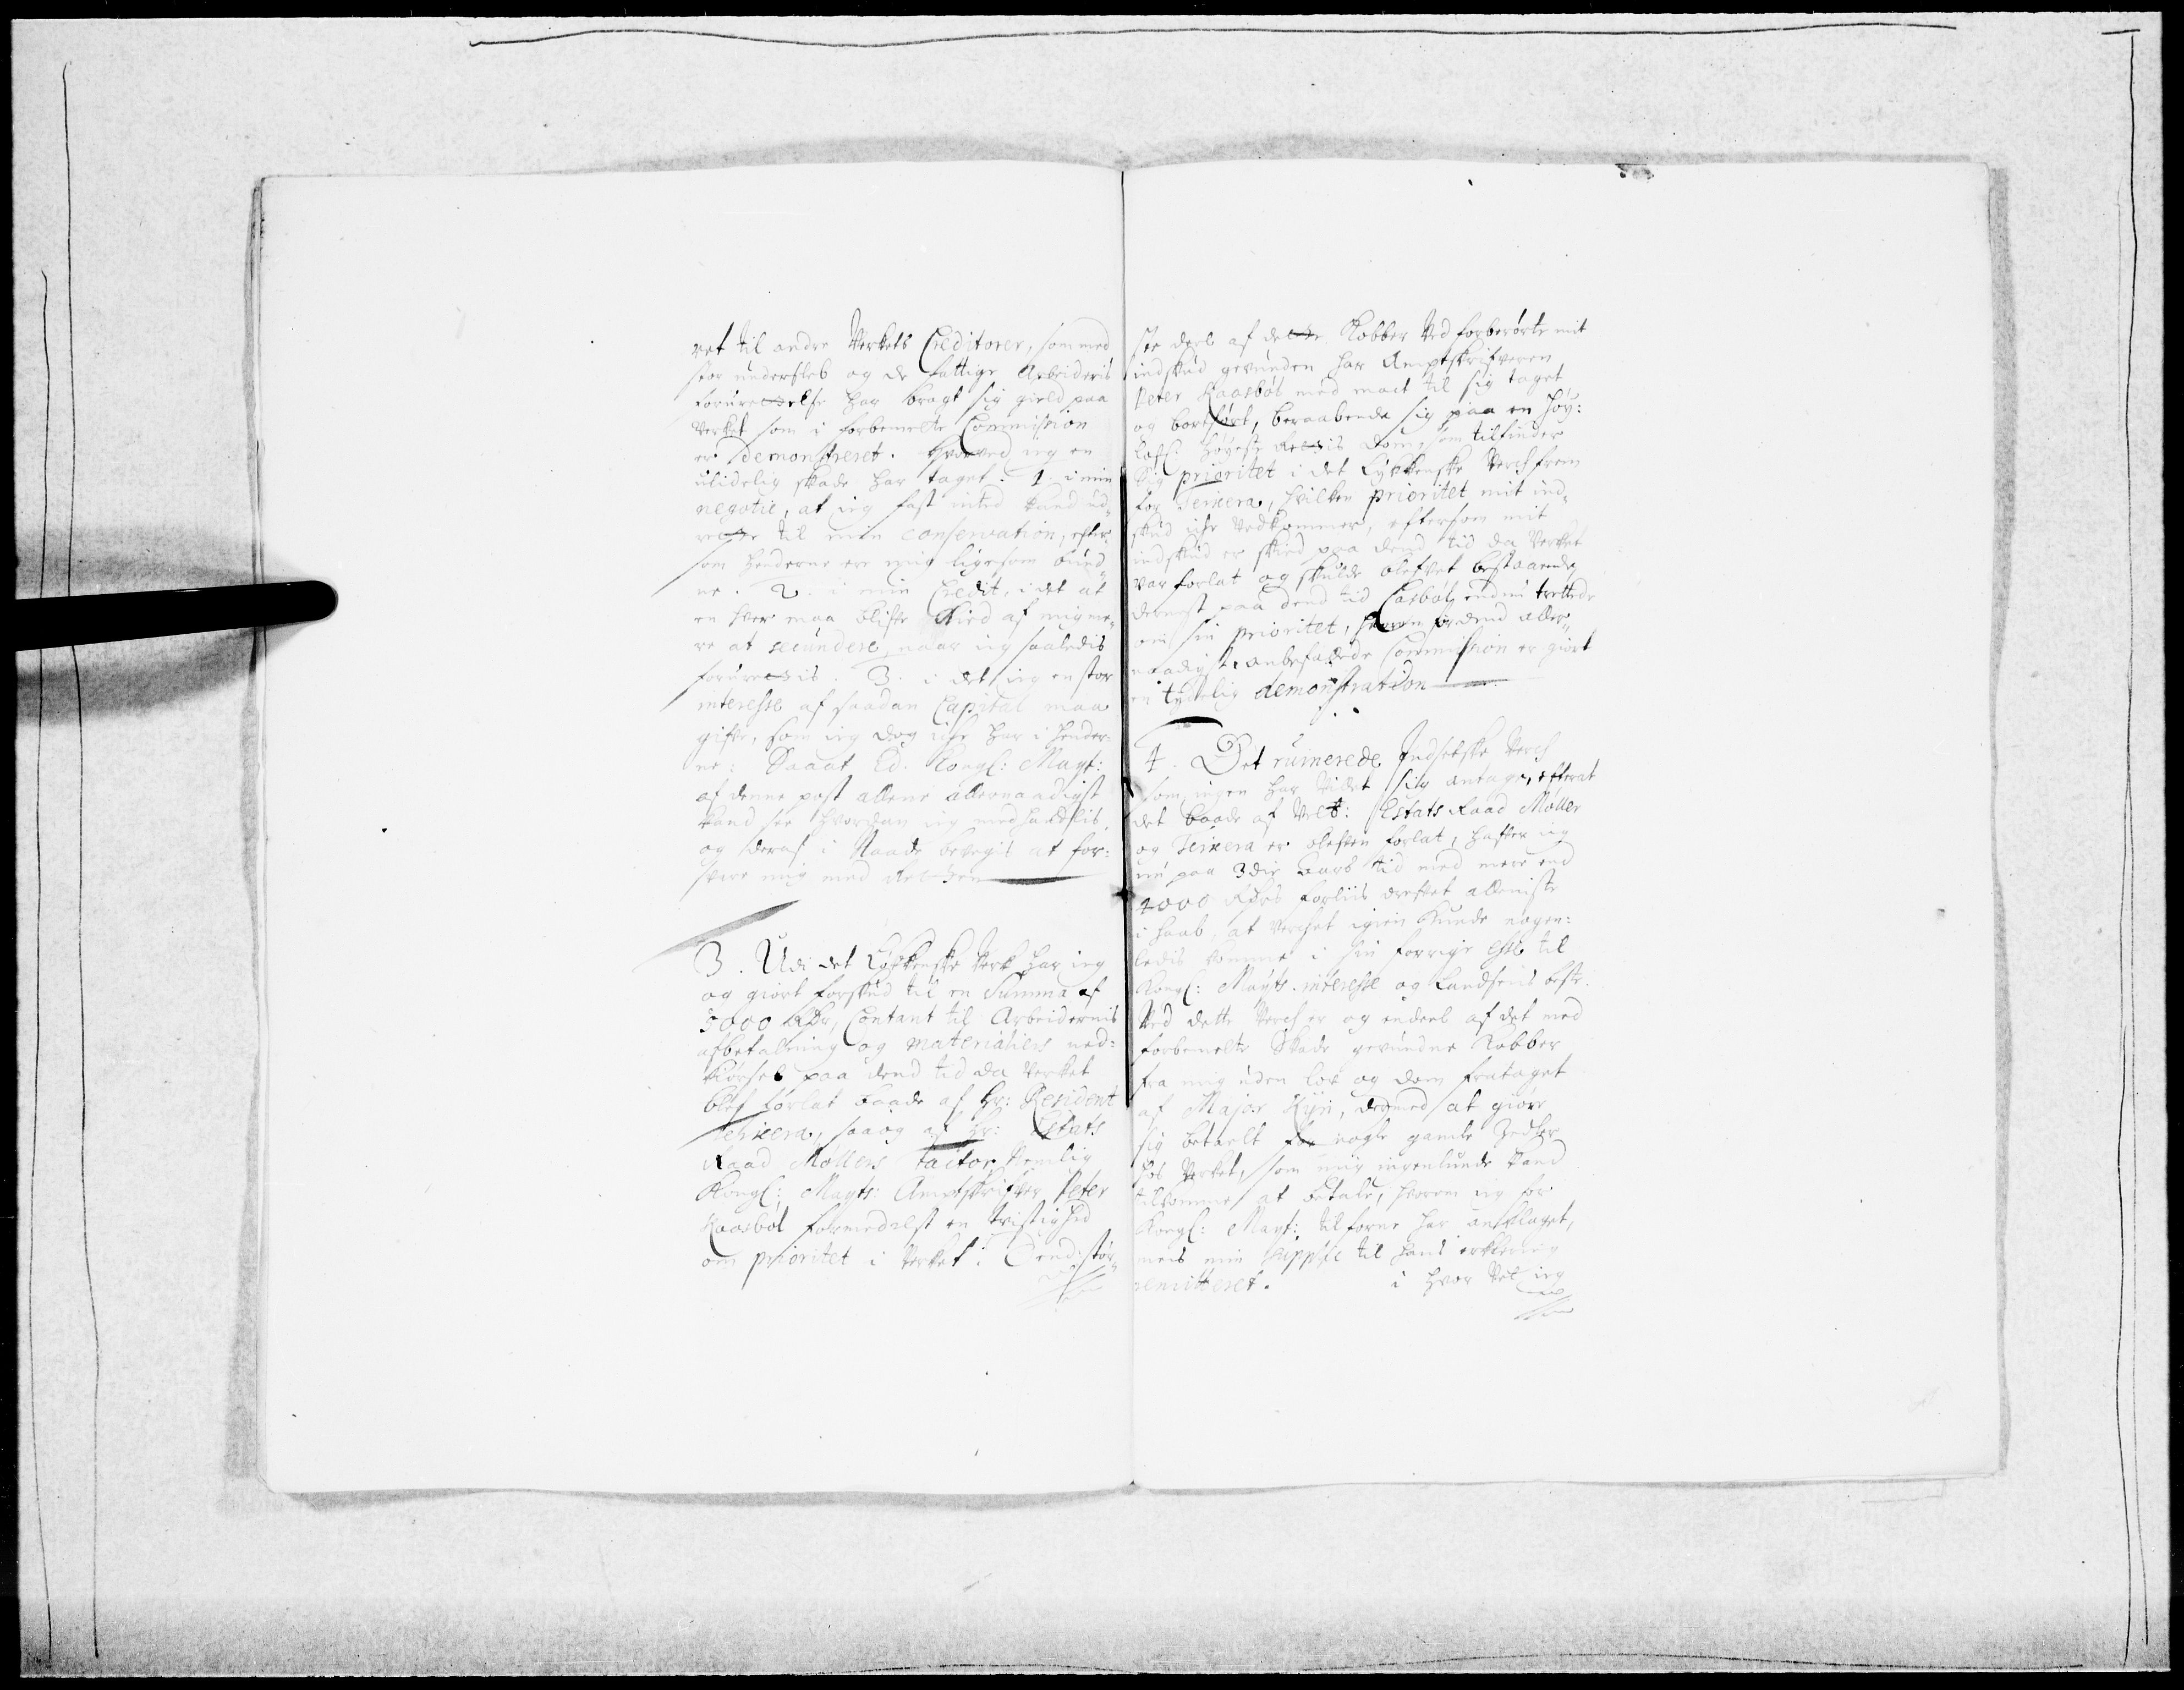 ret til andre Verkets Creditorer, som med
stor undersleb og de fattige Arbeideris
forurettelse har bragt sig gield paa
Verket som i forbemelte Commission
er demonstreret. Hvorved ieg en
ulidelig skade har taget: 1. i min
negotie, at ieg fast inted kand ud¬
rette til min conservation, efter¬
som henderne ere mig ligesom bund¬
ne. 2. i min Credit, i det at
en hver maa blifve kied af mig me¬
re at secundere, naar ieg saaledis
forurettis. 3. i det ieg en stor
interesse af saadan Capital maa
gifve, som ieg dog iche har i hender¬
ne: Saaat Ed. Kongl: Mayt:
af denne post allene allernaadigst
kand see hvordan ieg medhandlis,
og deraf i Naade bevegis at for¬
svare mig med retten
3. Udi det Løkkenske Verk har ieg
og giort forskud til en Summa af
5000 Rdr, Contant til Arbeidernis
afbetalning og materialiers ned¬
kiørsel paa dend tid da Verket
blef forlat baade af Hr: Resident
Teixera, saa og af Hr: Estats
Raad Møllers factor Nemlig
Kongl: Mayts: Amptskrifver Peter
Kaasbøl formedelst en tvistighed
om prioritet i Verket: Dend stør¬
ste deel af dette Kobber Ved forberørte mit
indskud gevunden har Amptskrifveren
Peter Kaasbøl med mact til sig taget,
og bortført, beraabende sig paa en Høy:
Lofl: Høyeste Rettis dom, som tilfinder
Sig prioritet i det Løkkenske Verch frem
for Teixera, hvilken prioritet mit ind¬
skud iche vedkommer, eftersom mit
indskud er skied paa dend tid da Verket
var forlat og skulde blefvet bestaaende,
dernest paa dend tid Casbøl endnu trettede
om sin prioritet, hvorom for dend aller¬
naadigste anbefallede Commission er giort
en tydelig demonstration
4. Det ruinerede Indsetske Verch
som ingen har vildet sig antage, efterat
det baade af Velb: Estats Raad Møller
og Teixera er blefven forlat, hafver ieg
nu paa 3die Aars tid med mere end
4000 Rdrs forliis drefvet alleniste
i haab, at Verchet igien kunde nogen¬
ledis komme i sin forrige esse til
Kongl: Mayts. interesse og Landsens beste.
Ved dette Verch er og endeel af det med
forbemelte Skade gevundne Kobber
fra mig uden lov og dom frataget
af Major Kyn, dermed at giøre
sig betaelt for nogle gamle Zedler
hos Verket, som mig ingenlunde kand
tilkomme at betale, hvorom ieg for
Kongl: Mayt: tilforne har anklaget,
mens min Suppliq til hans erklering
remitteret. i hvor Vel ieg